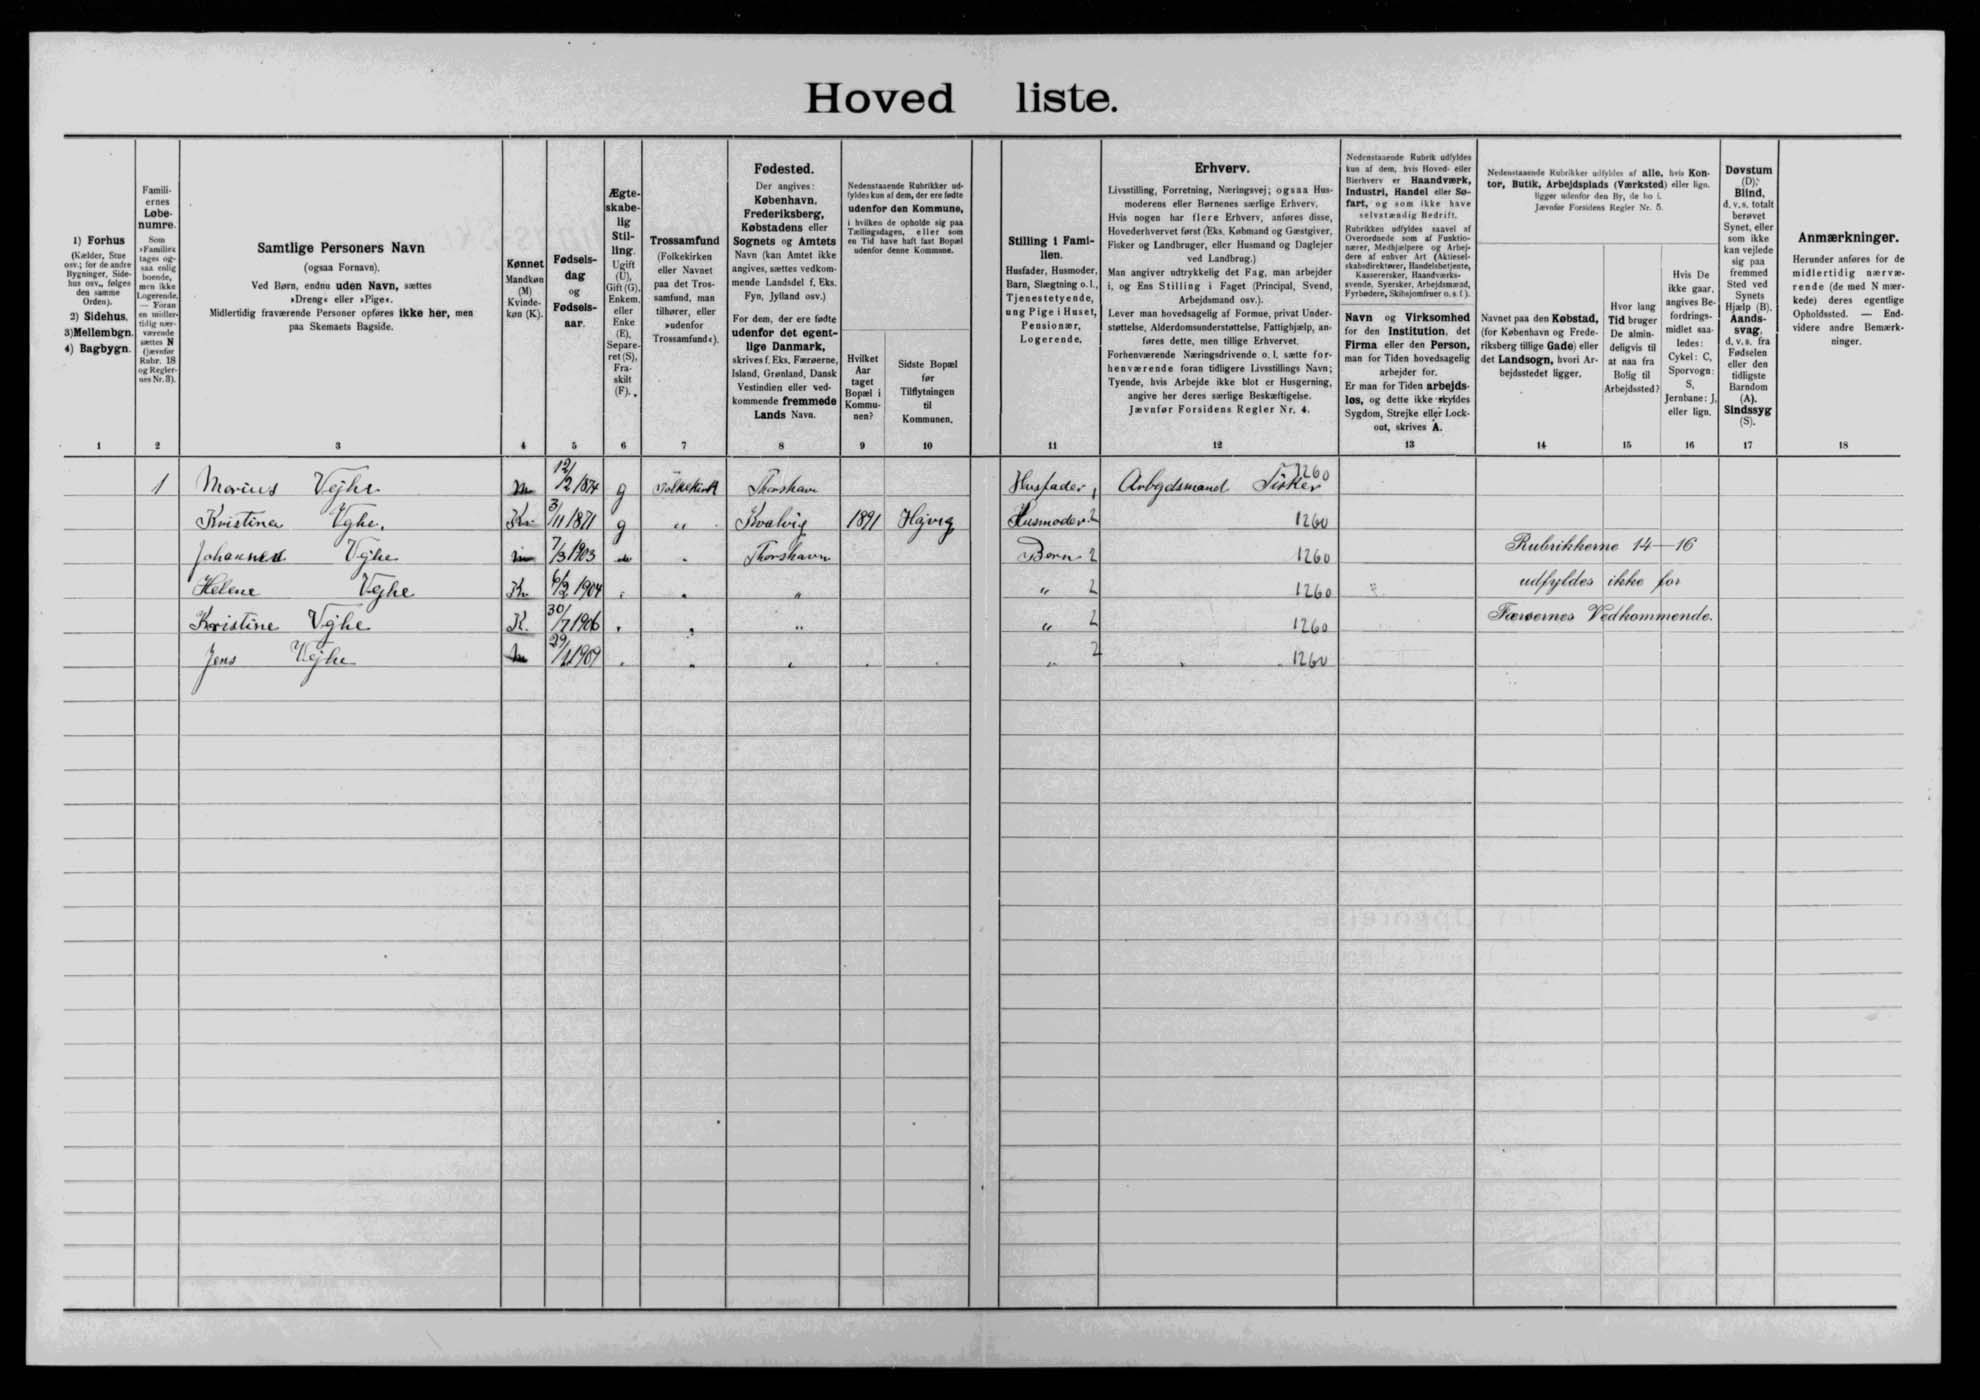 Hovedliste.
1) Forhus
(Kælder, Stue
osv.; for de andre
Bygninger, Side-
hus osv., følges
den samme
Orden).
2) Sidehus,
3) Mellembgn.
4) Bagbygn.
Famili-
ernes
Løbe-
numre.
Som
»Familie«
tages og-
saa enlig
boende,
men ikke
Logerende.
— Foran
en midler-
tidig nær-
værende
sættes N
(jævnfør
Rubr. 18
og Regler-
nes Nr. 3).
Samtlige Personers Navn
(ogsaa Fornavn).
Ved Børn, endnu uden Navn, sættes
»Dreng« eller »Pige«.
Midlertidig fraværende Personer opføres ikke her, men
paa Skemaets Bagside.
Kønnet
Mandkøn
(M)
Kvinde-
køn (K).
Fødsels-
dag
og
Fødsels-
aar.
Ægte-
skabe-
lig
Stil-
ling.
Ugift
(U),
Gift (G),
Enkem.
eller
Enke
(E),
Separe-
ret (S),
Fra-
skilt
(F).
Trossamfund
(Folkekirken
eller Navnet
paa det Tros-
samfund, man
tilhører, eller
»udenfor
Trossamfund«).
Fødested.
Der angives:
København,
Frederiksberg,
Købstadens eller
Sognets og Amtets
Navn (kan Amtet ikke
angives, sættes vedkom-
mende Landsdel f. Eks.
Fyn, Jylland osv.)
For dem, der ere fødte
udenfor det egent-
lige Danmark,
skrives f. Eks. Færøerne,
Island, Grønland, Dansk
Vestindien eller ved-
kommende fremmede
Lands Navn.
Nedenstaaende Rubrikker ud-
fyldes kun af dem, der ere fødte
udenfor den Kommune,
i hvilken de opholde sig paa
Tællingsdagen, eller som
en Tid have haft fast Bopæl
udenfor denne Kommune.
Hvilket
Aar
taget
Bopæl i
Kommu-
nen?
Sidste Bopæl
før
Tilflytningen
til
Kommunen.
Stilling i Fami-
lien.
Husfader, Husmoder,
Barn, Slægtning o. l.,
Tjenestetyende,
ung Pige i Huset,
Pensionær,
Logerende.
Erhverv.
Livsstilling, Forretning, Næringsvej; ogsaa Hus-
moderens eller Børnenes særlige Erhverv.
Hvis nogen har flere Erhverv, anføres disse,
Hovederhvervet først (Eks. Købmand og Gæstgiver,
Fisker og Landbruger, eller Husmand og Daglejer
ved Landbrug.)
Man angiver udtrykkelig det Fag, man arbejder
i, og Ens Stilling i Faget (Principal, Svend,
Arbejdsmand osv.).
Lever man hovedsagelig af Formue, privat Under-
støttelse, Alderdomsunderstøttelse, Fattighjælp, an-
føres dette, men tillige Erhvervet.
Forhenværende Næringsdrivende o. l. sætte for-
henværende foran tidligere Livsstillings Navn;
Tyende, hvis Arbejde ikke blot er Husgerning,
angive her deres særlige Beskæftigelse.
Jævnfør Forsidens Regler Nr. 4.
Nedenstaaende Rubrik udfyldes
kun af dem, hvis Hoved- eller
Bierhverv er Haandværk,
Industri, Handel eller Sø-
fart, og som ikke have
selvstændig Bedrift.
Rubrikken udfyldes saavel af
Overordnede som af Funktio-
nærer, Medhjælpere og Arbej-
dere af enhver Art (Aktiesel-
skabsdirektører, Handelsbetjente,
Kassererskér, Haandværks-
svende, Syersker, Arbejdsmænd,
Fyrbødere, Skibsjomfruer o. s. f.).
Navn og Virksomhed
for den Institution, det
Firma eller den Person,
man for Tiden hovedsagelig
arbejder for.
Er man for Tiden arbejds-
løs, og dette ikke skyldes
Sygdom, Strejke eller Lock-
out, skrives A.
Nedenstaaende Rubrikker udfyldes af alle, hvis Kon-
tor, Butik, Arbejdsplads (Værksted) eller lign.
ligger udenfor den By, de bo i.
Jævnfør Forsidens Regler Nr. 5.
Navnet paa den Købstad,
(for København og Frede-
riksberg tillige Gade) eller
det Landsogn, hvori Ar-
bejdsstedet ligger.
Hvor lang
Tid bruger
De almin-
deligvis til
at naa fra
Bolig til
Arbejdssted?
Hvis De
ikke gaar,
angives Be-
fordrings-
midlet saa-
ledes:
Cykel: C,
Sporvogn:
S,
Jernbane: J,
eller lign.
Døvstum
(D);
Blind,
d. v. s. totalt
berøvet
Synet, eller
som ikke
kan vejlede
sig paa
fremmed
Sted ved
Synets
Hjælp (B).
Aands-
svag,
d. v. s. fra
Fødselen
eller den
tidligste
Barndom
(A).
Sindssyg
(S).
Anmærkninger.
Herunder anføres for de
midlertidig nærvæ-
rende (de med N mær-
kede) deres egentlige
Opholdssted. — End-
videre andre Bemærk-
ninger.
1 2 3 4 5 6 7 8 9 10 11 12 13 14 15 16 17 18
1 Marius Vejhe M 12/2 1874 g Folkekirk Thorshavn Husfader 1 Arbejdsmand Fisker 1260
Kristina Vejhe. K. 3/11 1871 g " Kvalvig 1891 Hojvig Husmoder 2 1260
Johannes Vejhe 7/3 1903 Thorshavn Børn 2 1260
Helene Vejhe K. 1904 " " 2 1260
Kristine Vejhe K. 30/7 1906 " " 2 1260
Jens Vejhe M 1909 " " 2 1260
Rubrikkerne 14—16
udfyldes ikke for
Færøernes Vedkommende.